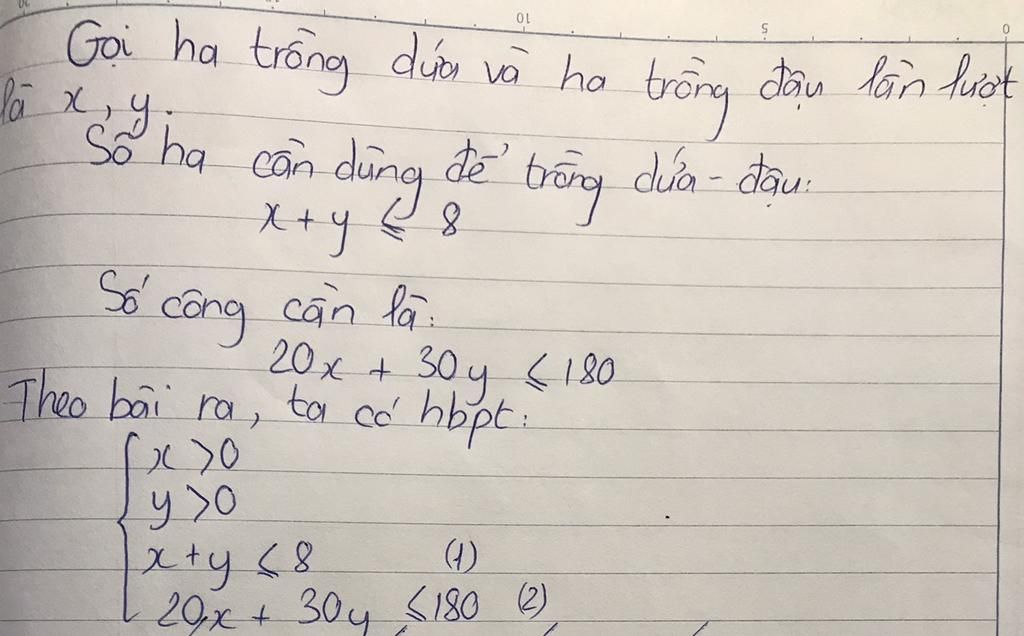 10 5 0
Gọi ha trồng dứa và ha trồng đậu lần lượt
là x, y.
Số ha cần dùng để trồng dứa - đậu:
x + y ≤ 8
Số công cần là:
20x + 30y ≤ 180
Theo bài ra, ta có hbpt:
x > 0
y > 0
x + y ≤ 8 (1)
20x + 30y ≤ 180 (2)